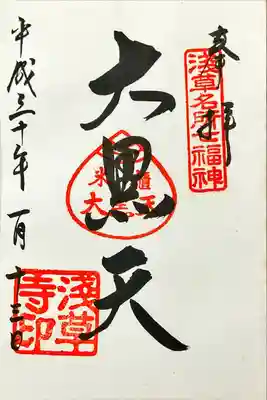 奉拝
浅草名所七福神
大黒天
平成三十年一月十三日
浅草
寺印